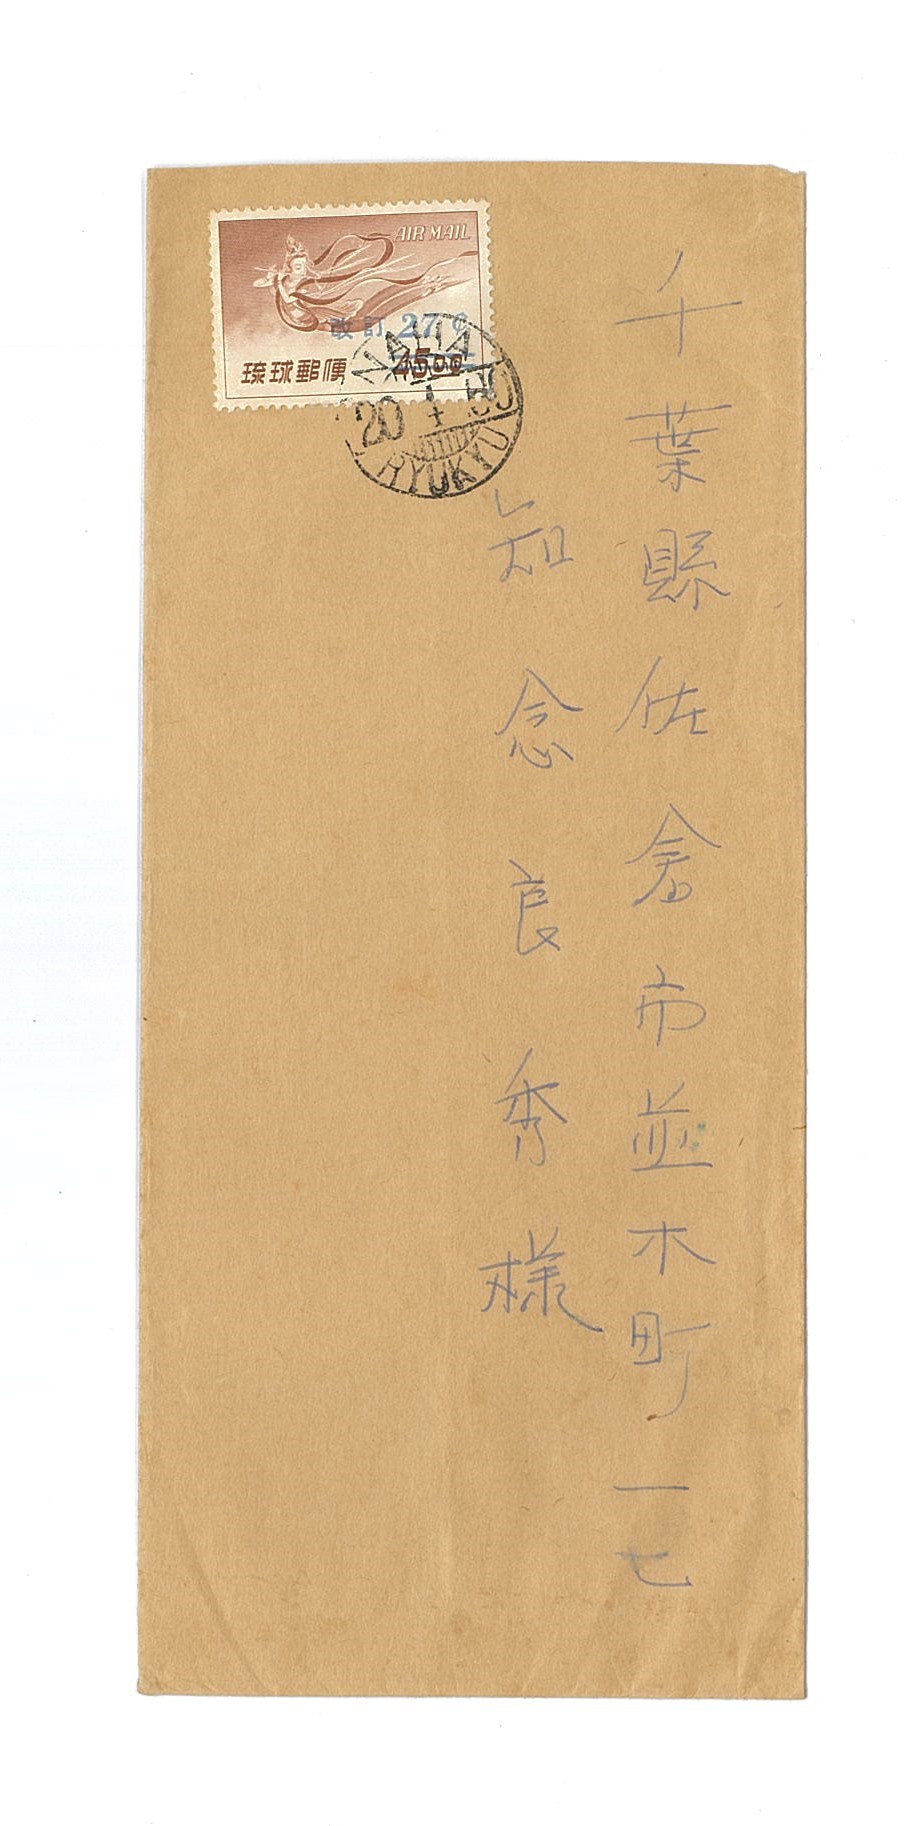 AIR MAIL
改訂 27¢
琉球郵便 45.00
NAHA
20 4
RYUKYU
千葉縣佐倉市並木町一七
知念良秀様